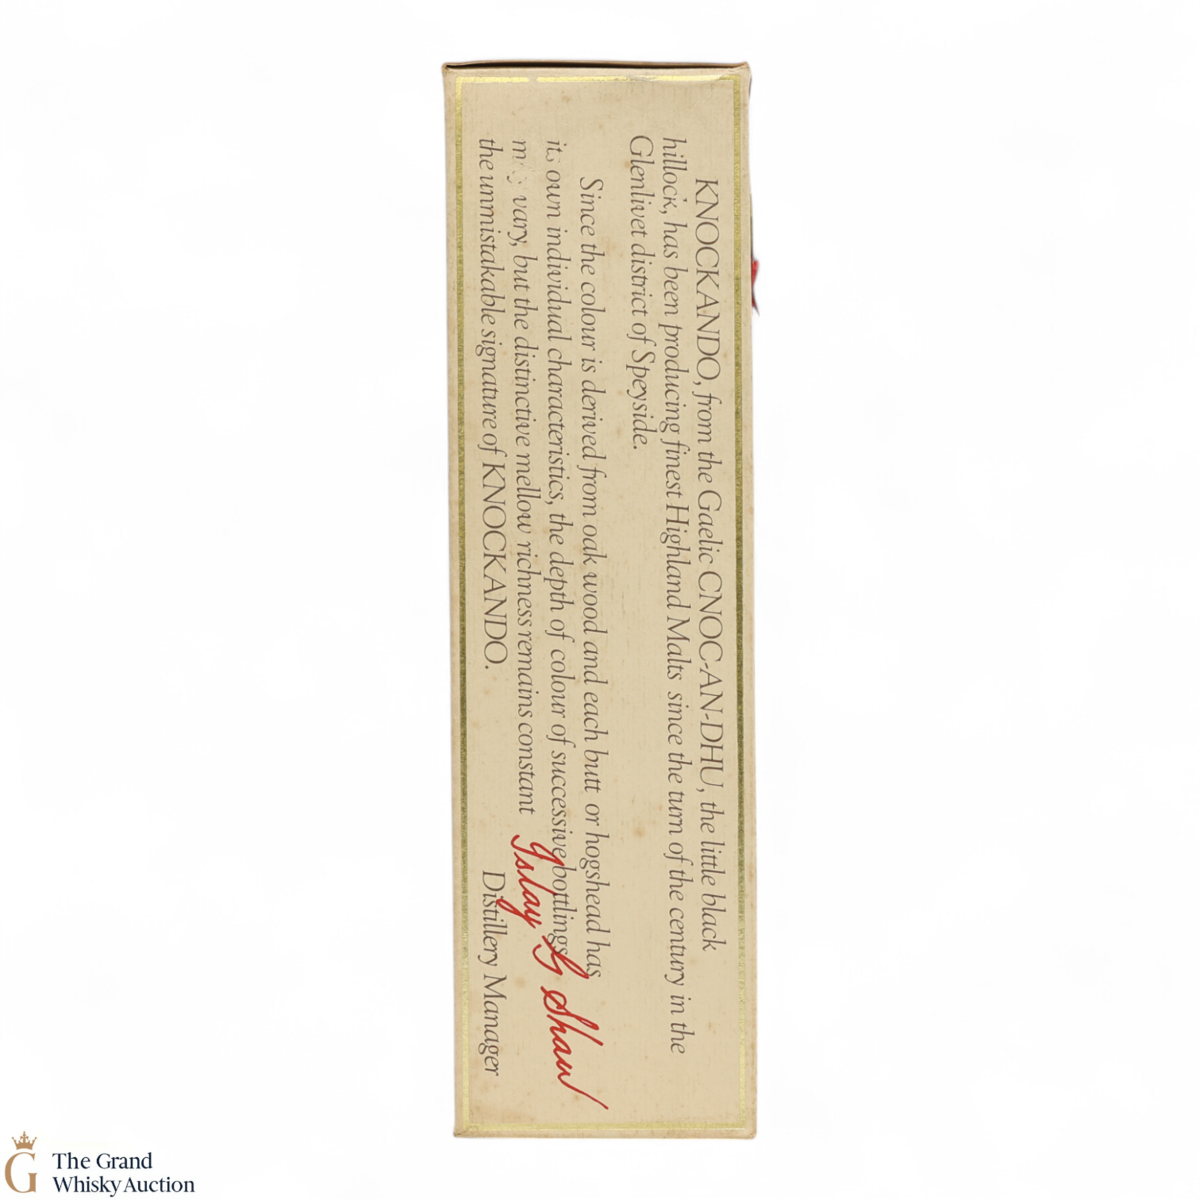 KNOCKANDO, from the Gaelic CNOC-AN-DHU, the little black
hillock, has been producing finest Highland Malts since the turn of the century in the
Glenlivet district of Speyside.
Since the colour is derived from oak wood and each butt or hogshead has
its own individual characteristics, the depth of colour of successive bottlings
may vary, but the distinctive mellow richness remains constant
the unmistakable signature of KNOCKANDO.
Islay G Shaw
Distillery Manager
G
The Grand
Whisky Auction